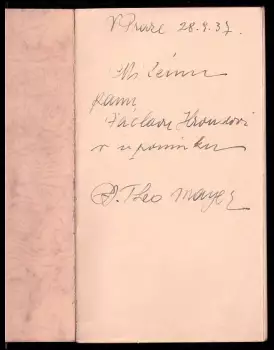 V Praze 28.9.37.
Milému
panu
Václavu Hronsovi
v upomínku
D. Theo Mayer